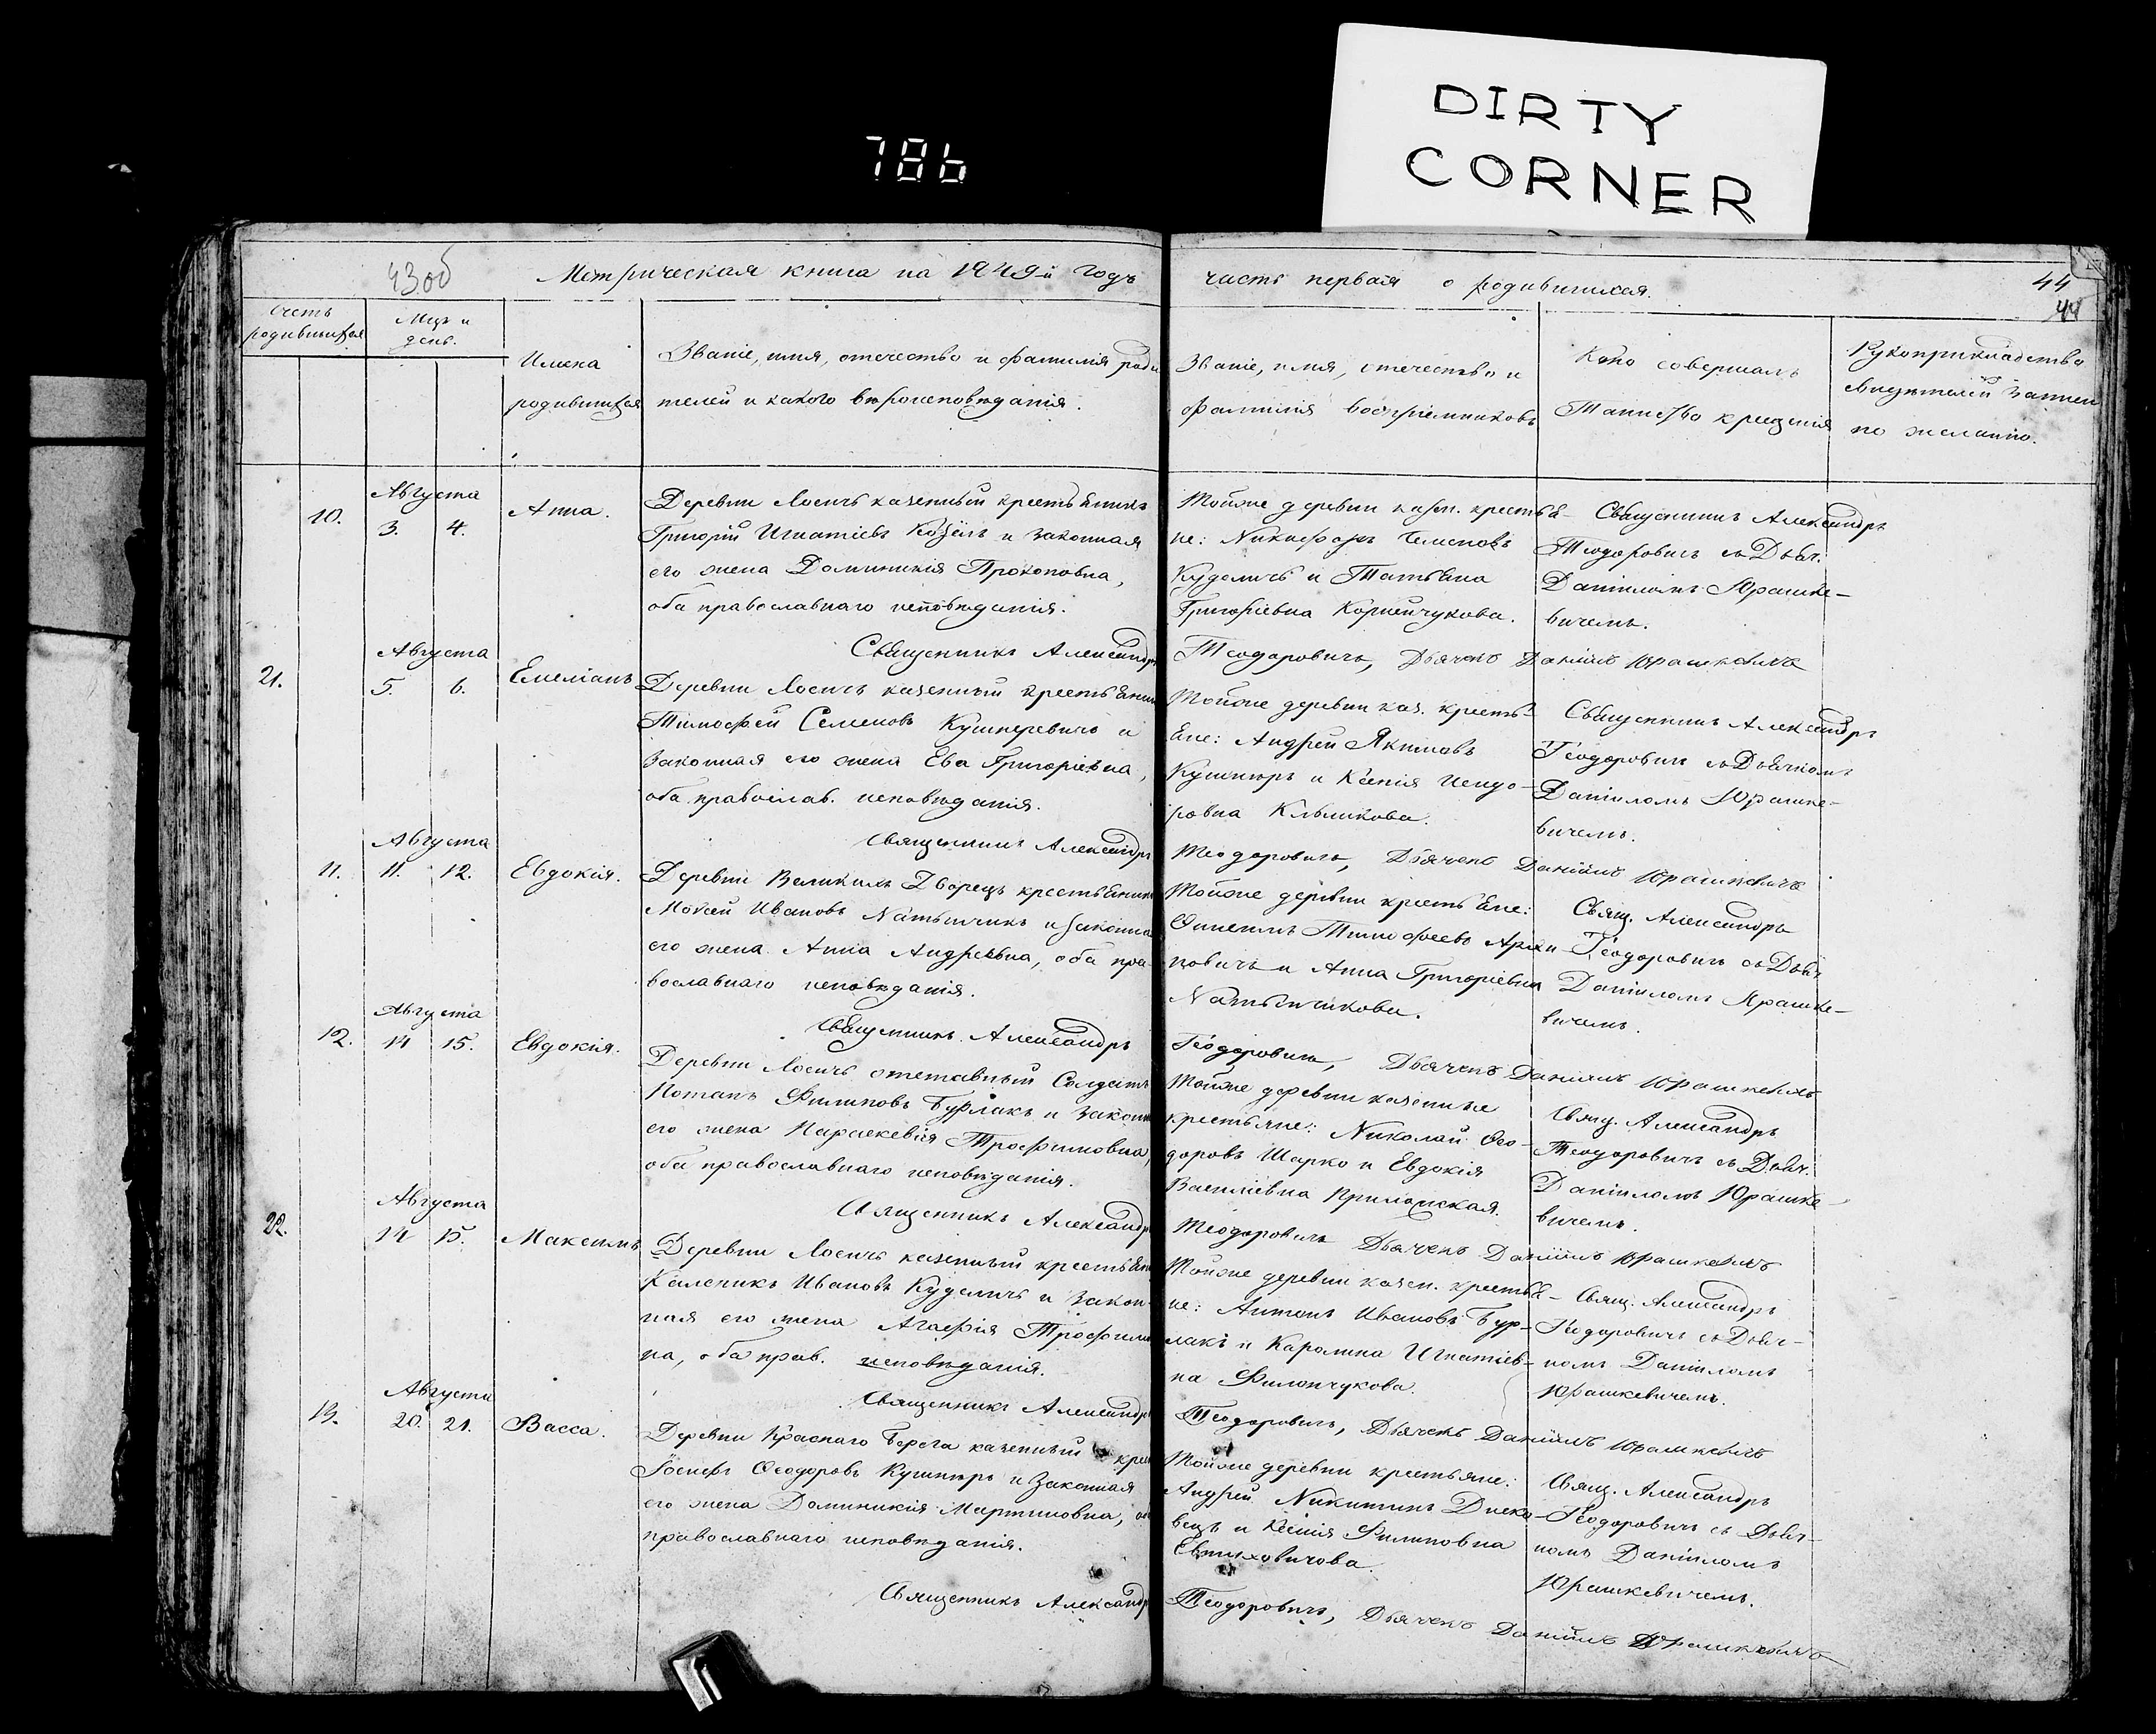 DIRTY
CORNER
786
43об
Метрическая книга на 1849й годъ
часть первая о родившихся.
44
44
Счетъ родившихся
Мцъ и день.
Имена родившихся
Званіе, имя, отечество и фамилія роди
телей и какого вѣроисповѣданія.
Званіе, имя, отечество и
фамилія воспріемниковъ
Кто совершалъ
Таинство крещенія
Рукоприкладство
свидетелей записи
по желанію.
10.
Августа
3. 4.
Анна.
Деревни Лосичъ казенный крестьянинъ
Григорій Игнатіевъ Козёлъ и законная
его жена Доминикія Прокоповна,
оба православнаго исповѣданія.
Тойже деревни казен. крестья-
не: Никифоръ Семеновъ
Куделичъ и Татьяна
Григоріевна Корнейчукова.
Священникъ Александръ
Теодоровичъ съ Дьяч:
Даніиломъ Юрашке-
вичемъ.
Священникъ Александръ Теодоровичъ, Дьячекъ Даніилъ Юрашкевичъ
21.
Августа
5. 6.
Емеліанъ
Деревни Лосичъ казенный крестьянин
Тимофей Семеновъ Кушнеревичъ и
законная его жена Ева Григоріевна,
оба православ. исповѣданія.
Тойже деревни каз. кресть-
яне: Андрей Якимовъ
Кушниръ и Ксенія
ровна
Священникъ Александръ
Теодоровичъ съ Дьячкомъ
Даніиломъ Юрашке-
вичемъ.
Священникъ Александръ Теодоровичъ, Дьячекъ Даніилъ Юрашкевичъ
11.
Августа
11. 12.
Евдокія.
Деревни Великихъ Дворецъ крестьянинъ
Мойсей Ивановъ Натынчикъ и законна
его жена Анна Андреевна, оба пра-
вославнаго исповѣданія.
Тойже деревни крестьяне:
Онисимъ Тимофеевъ
повичъ и Анна Григоріевна
Натынчикова.
Свящ. Александръ
Теодоровичъ съ Дьяч
Даніиломъ Юрашке-
вичемъ.
Священникъ Александръ Теодоровичъ, Дьячекъ Даніилъ Юрашкевичъ
12.
Августа
14 15.
Евдокія.
Деревни Лосичъ отставный Солдатъ
Потапъ Филиповъ Бурлакъ и закон
его жена Параскевія Трофимовна,
оба православнаго исповѣданія.
Тойже деревни казенные
крестьяне: Николай Фео-
доровъ Шарко и Евдокія
Василіевна
Свящ. Александръ
Теодоровичъ съ Дьяч.
Даніиломъ Юрашке-
вичемъ.
Священникъ Александръ Теодоровичъ Дьячекъ Даніилъ Юрашкевичъ
22.
Августа
14 15.
Максимъ
Деревни Лосичъ казенный крестьян
Каленикъ Ивановъ Куделичъ и закон-
ная его жена Агафія Трофимов
на, оба прав. исповѣданія.
Тойже деревни казен. крестья-
не: Антонъ Ивановъ Бур-
лакъ и Каролина Игнатіев-
на Филипчукова.
Свящ. Александръ
Теодоровичъ съ Дьяч-
комъ Даніиломъ
Юрашкевичемъ.
Священникъ Александръ Теодоровичъ, Дьячекъ Даніилъ Юрашкевичъ
13.
Августа
20. 21.
Васса.
Деревни Краснаго Берега казенный крес
Іосифъ Феодоровъ Кушниръ и законная
его жена Доминикія Мартиновна, об
православнаго исповѣданія.
Тойже деревни крестьяне:
Андрей Никитинъ
вецъ и Ксенія Филиповна
Евтиховичова.
Свящ. Александръ
Теодоровичъ съ Дьяч-
комъ Даніиломъ
Юрашкевичемъ.
Священникъ Александръ Теодоровичъ, Дьячекъ Даніилъ Юрашкевичъ